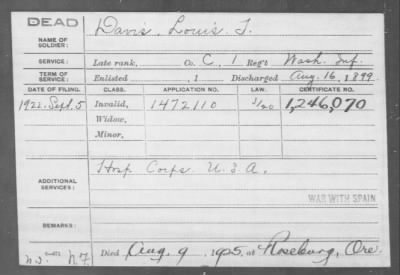 DEAD
NAME OF SOLDIER: Davis, Louis T.
SERVICE: Late rank, Co. C, 1 Reg't Wash. Inf.
TERM OF SERVICE: Enlisted , 1 Discharged Aug. 16, 1899.
DATE OF FILING. CLASS. APPLICATION NO. LAW. CERTIFICATE NO.
1922. Sept. 5 Invalid, 1472110 1,246,070
Widow,
Minor,
ADDITIONAL SERVICES: Hosp Corps U.S.A.
WAR WITH SPAIN
REMARKS:
Died Aug. 9, 1925, at Roseburg, Ore.